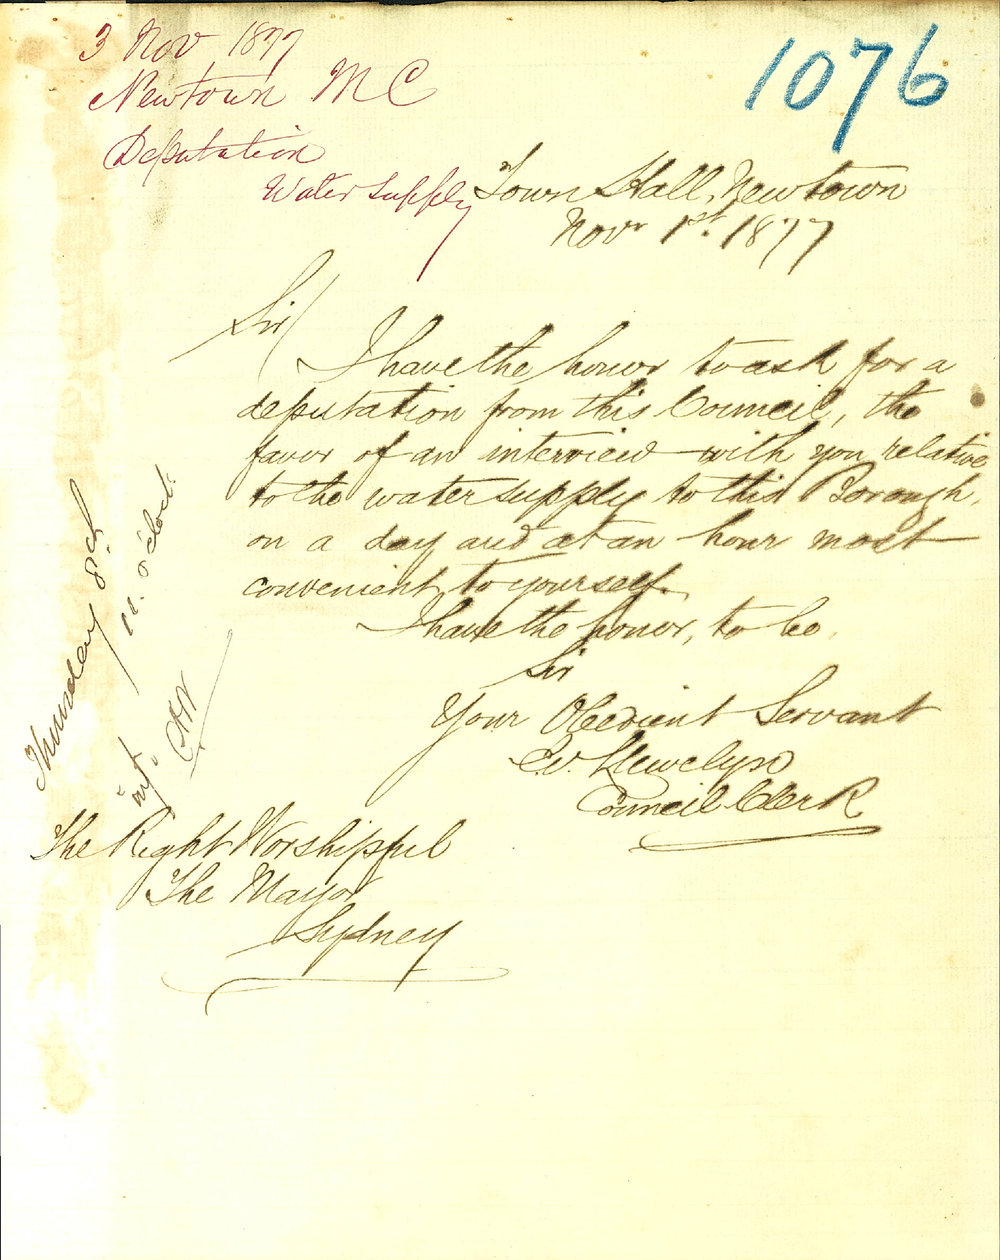 3 Nov 1877
Newtown M C
Deputation
Water Supply
1076
Town Hall, Newtown
Novr 1st. 1877
Sir/
I have the honor to ask for a
deputation from this Council, the
favor of an interview with you relative
to the water supply to this Borough,
on a day and at an hour most
convenient to yourself.
I have the honor, to be,
Sir
Your Obedient Servant
Llewelyn
Council Clerk
The Right Worshipful
The Mayor
Sydney
Thursday 8th
11. o'clock.